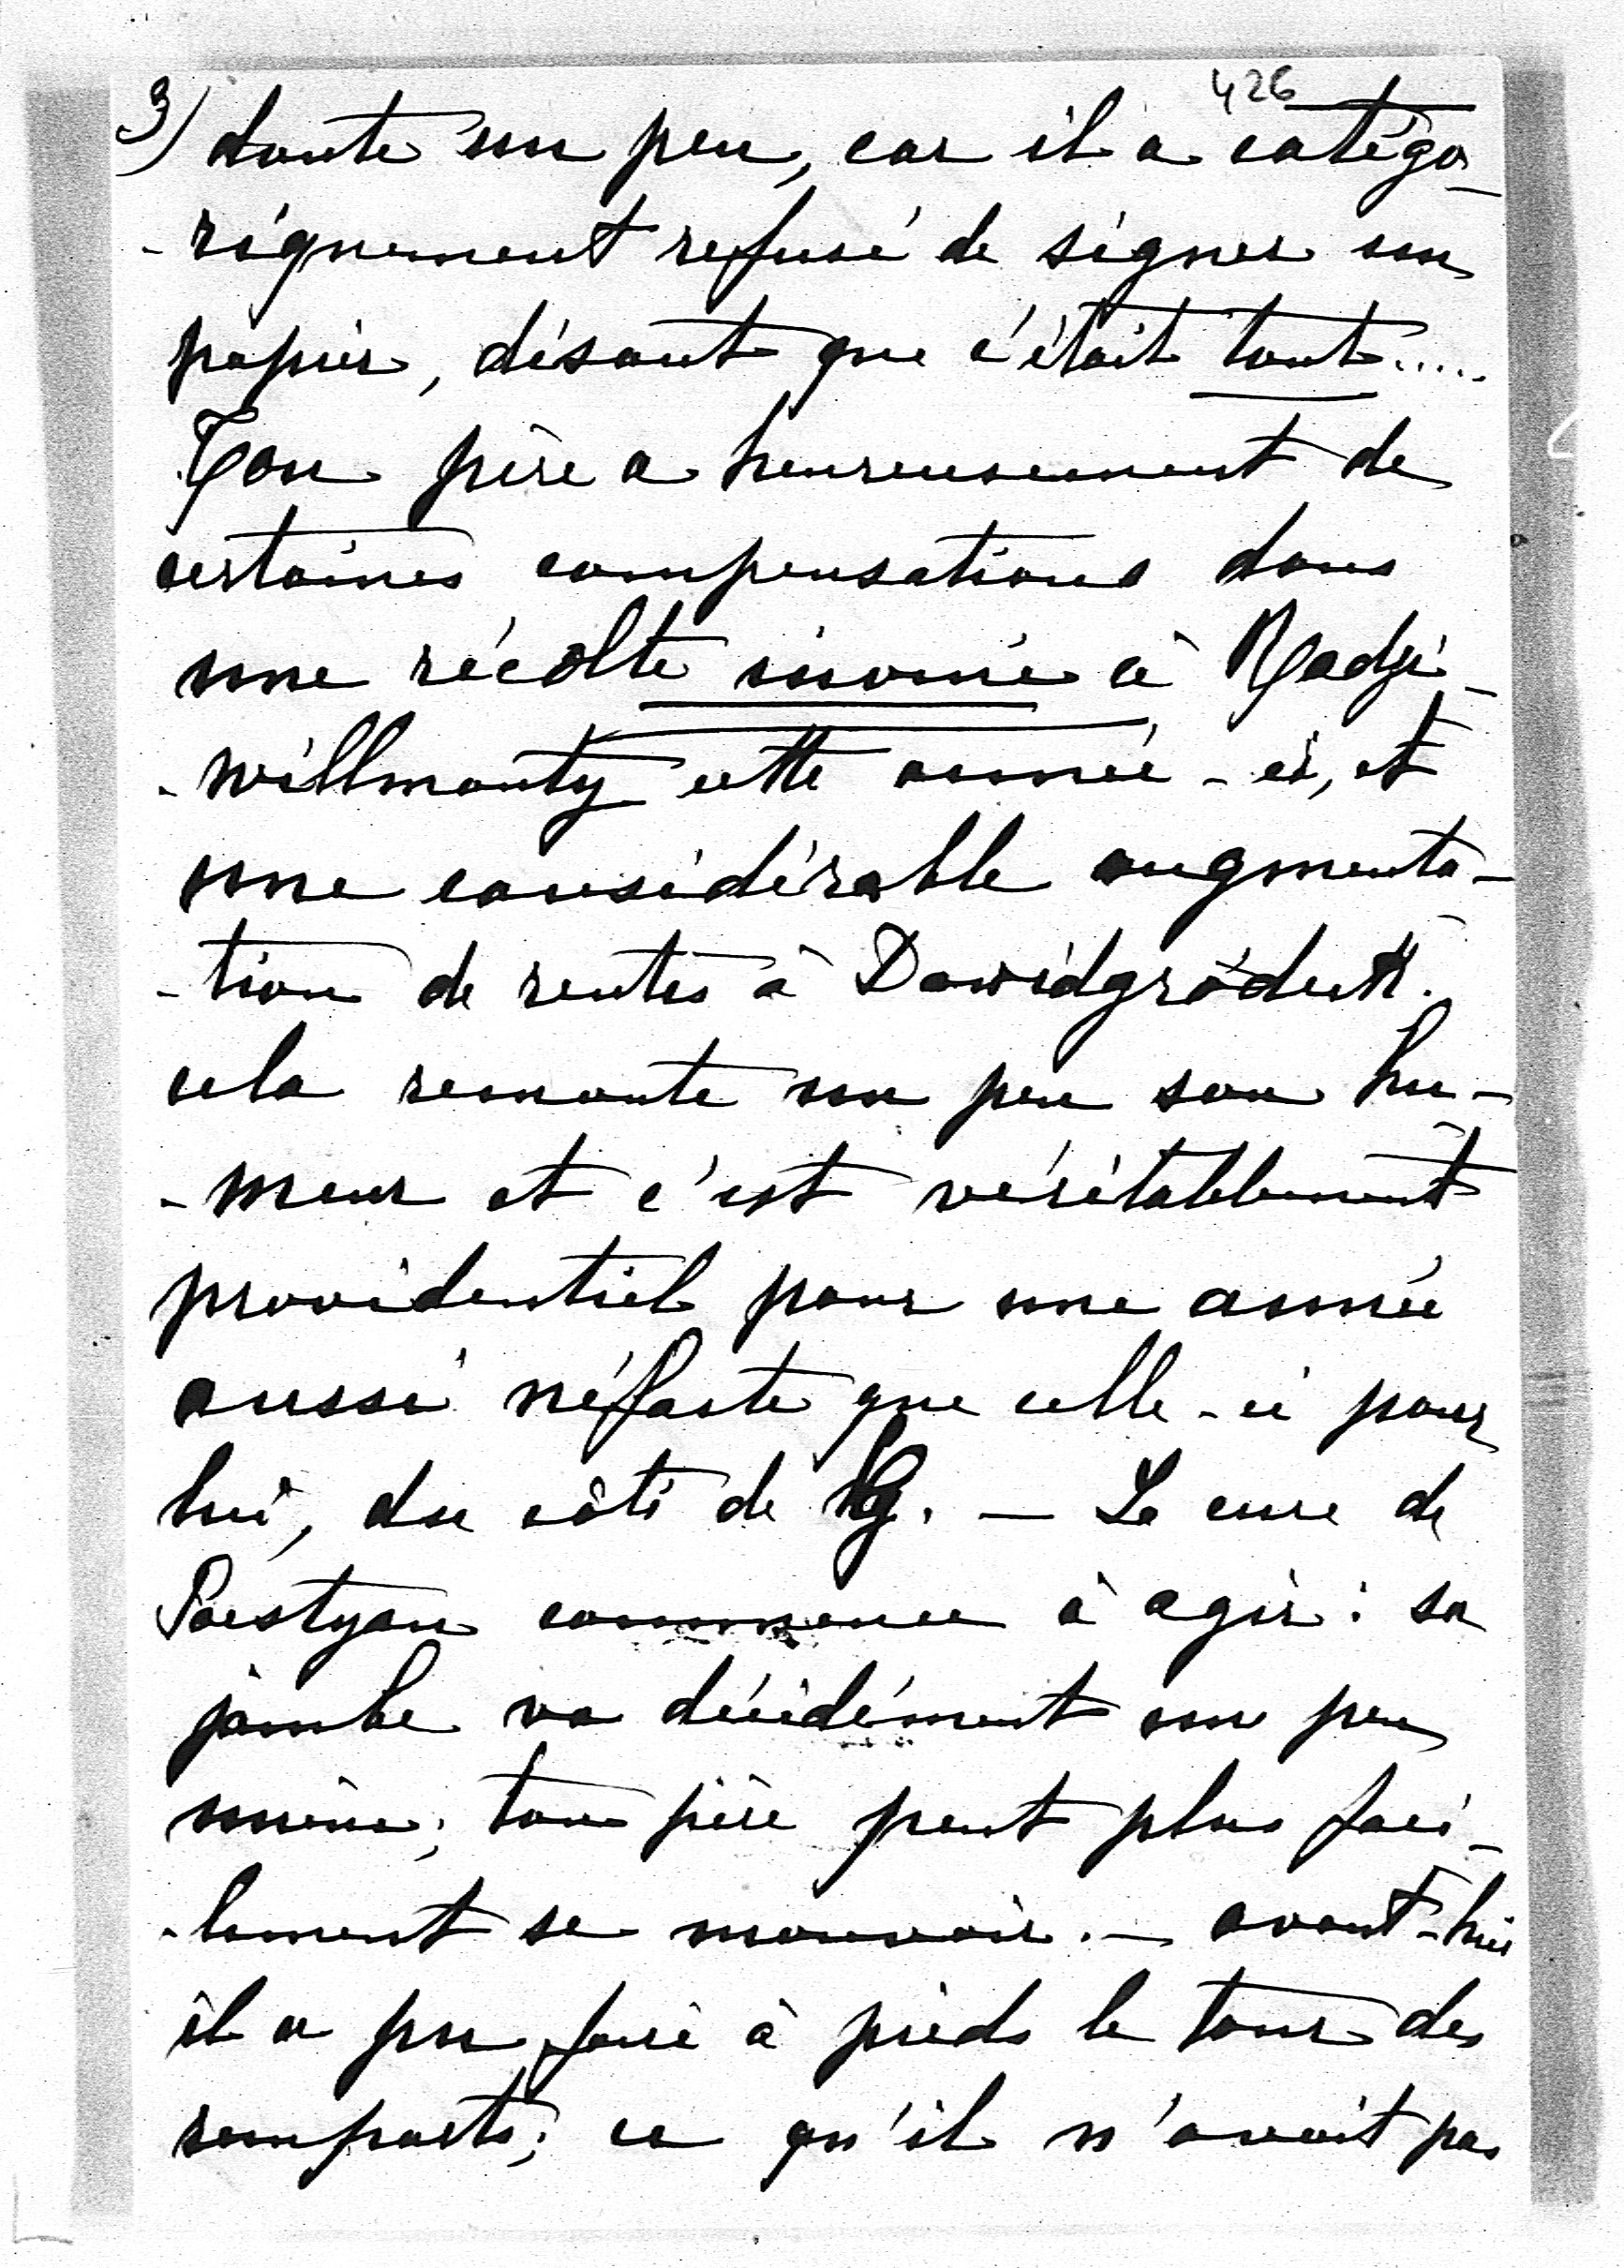 426
3) doute un peu, car il a catégo-
-riquement refusé de signer un
papier, disant que c'était tout.....
Ton père a heureusement de
certaines compensations dans
une récolte inouïe à Radzi-
-willmonty cette année-ci, et
une considérable augmenta-
-tion de rentes à Dawidgródek.
cela remonte un peu son hu-
-meur et c'est véritablement
providentiel pour une année
aussi néfaste que celle-ci pour
lui, du côté de G. — La cure de
Poestyan commence à agir: sa
jambe va décidément un peu
mieux; ton père peut plus faci-
-lement se mouvoir. — avant-hier
il a pu faire à pieds le tour des
remparts; ce qu'il n'avait pas